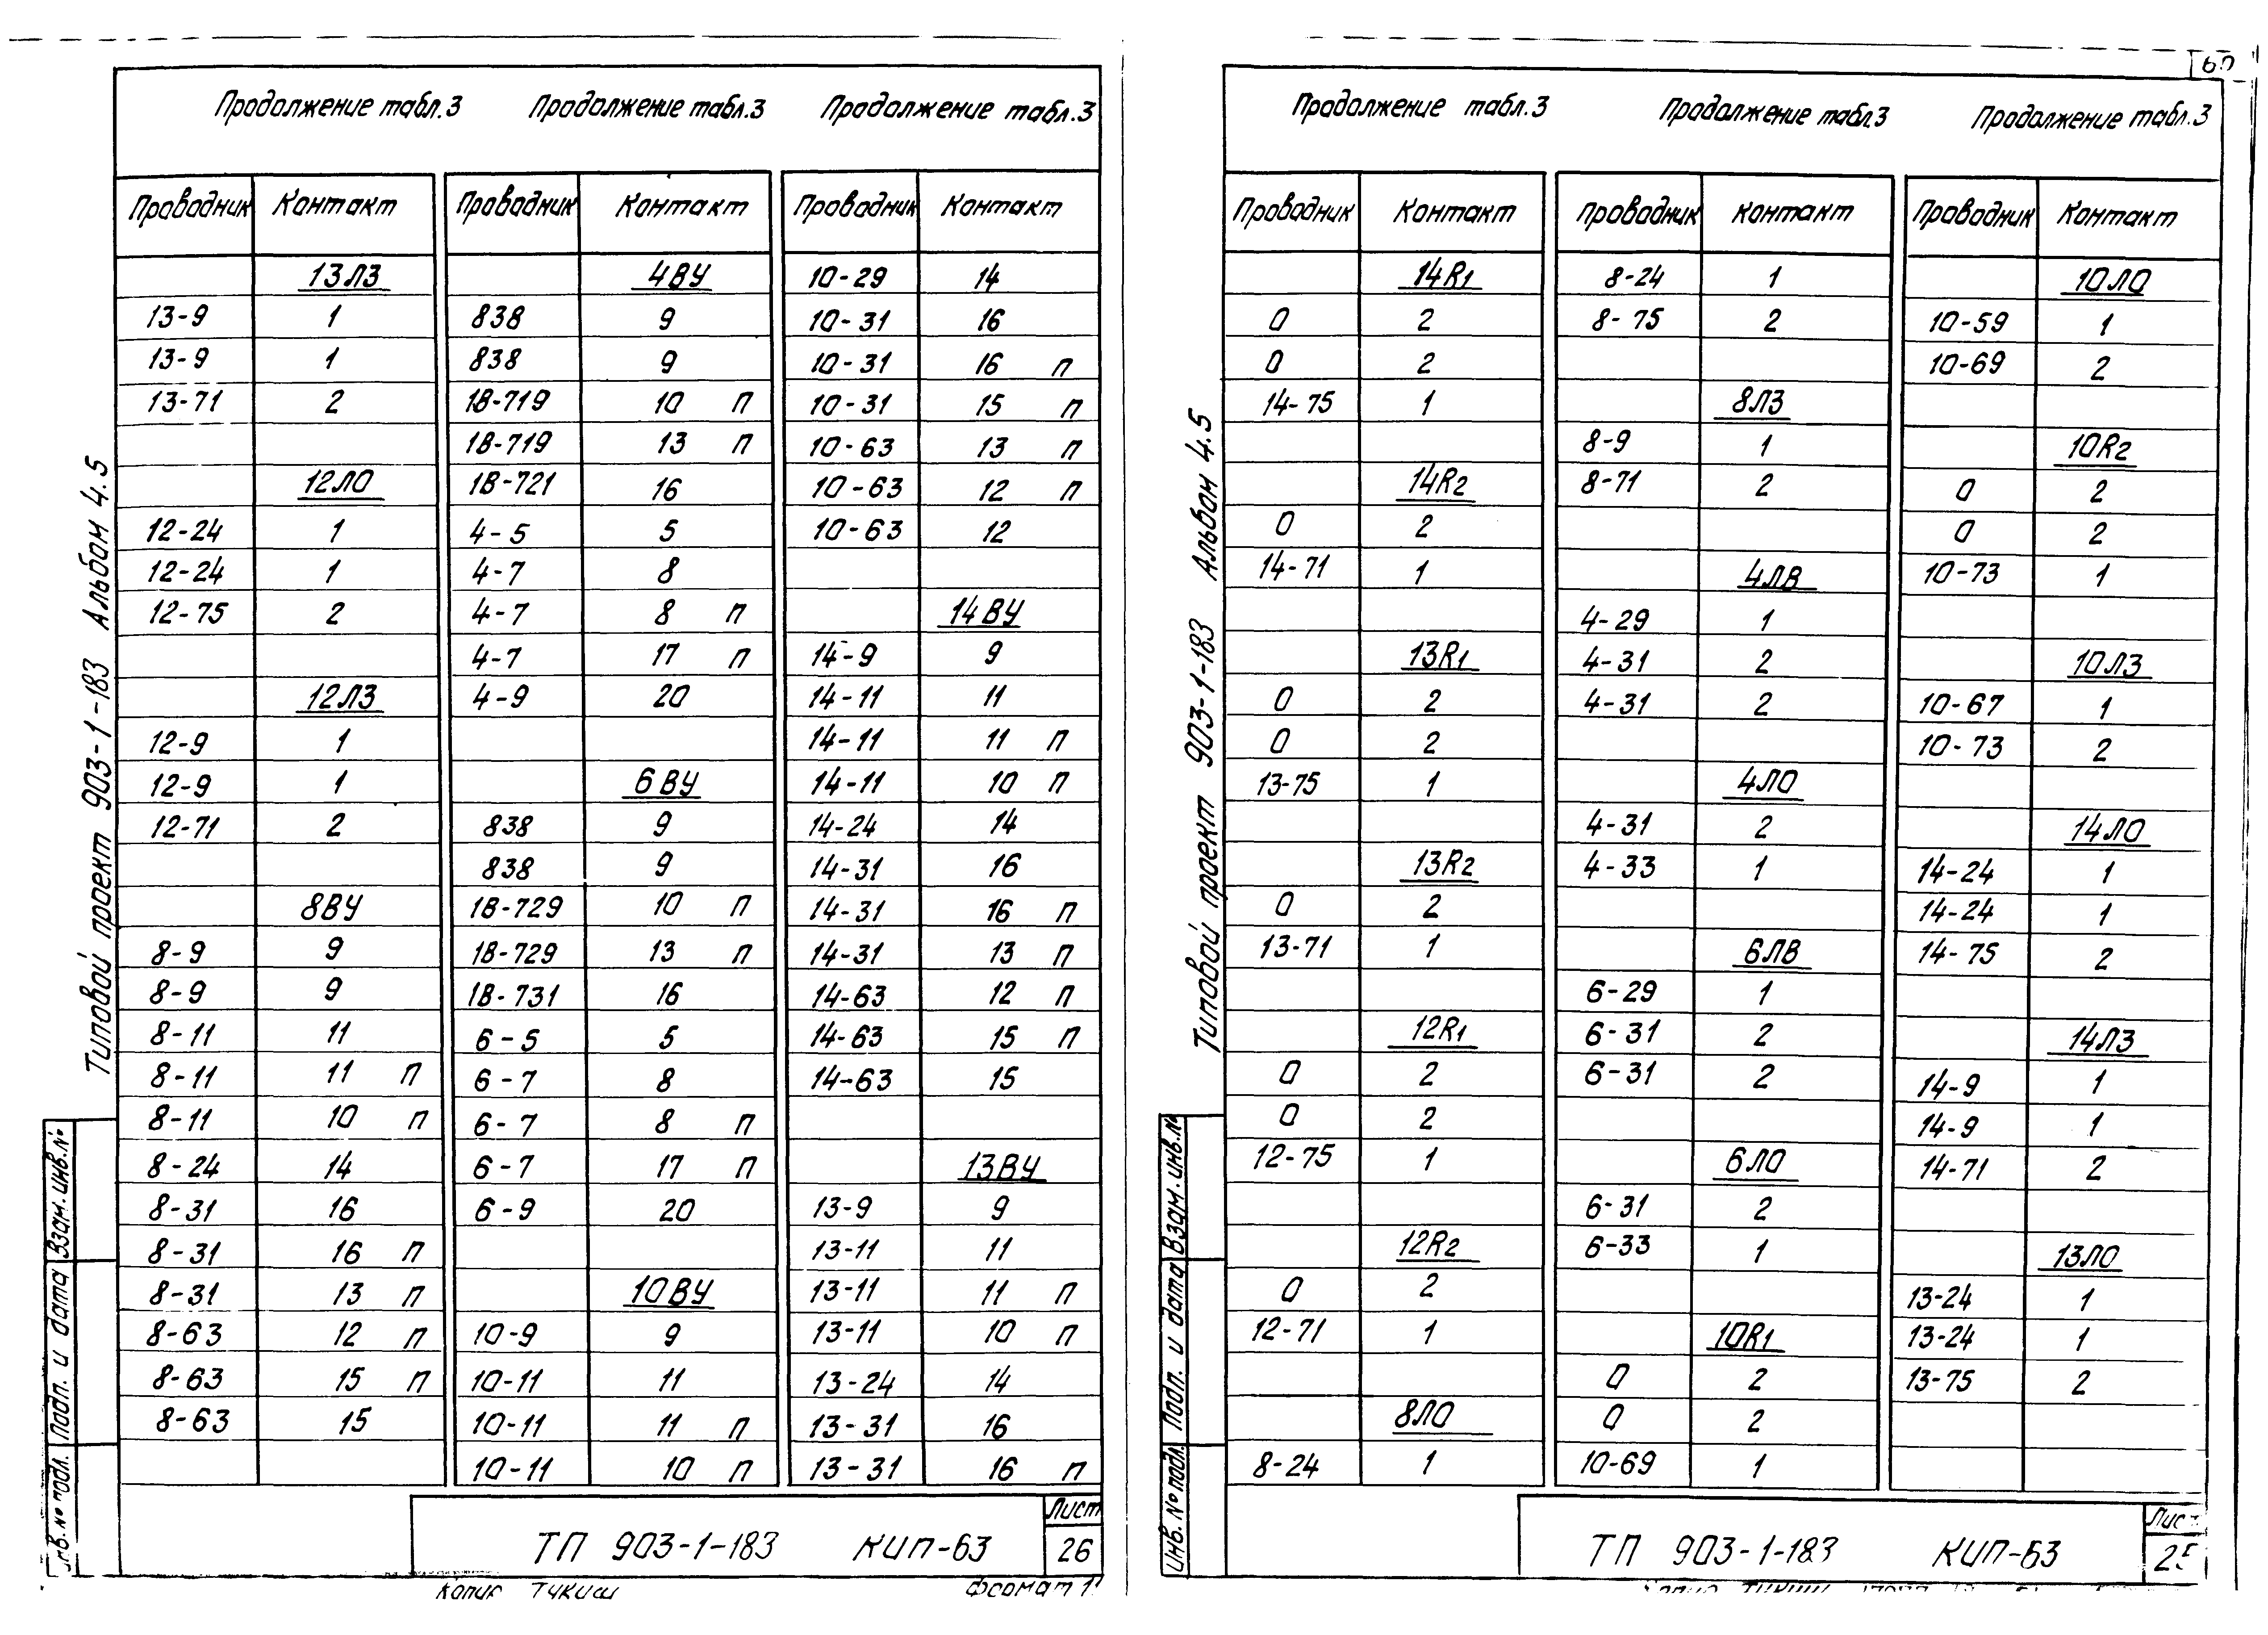 60
Продолжение табл.3 Продолжение табл.3 Продолжение табл.3
Проводник Контакт Проводник Контакт Проводник Контакт
13ЛЗ 4ВУ 10-29 14
13-9 1 838 9 10-31 16
13-9 1 838 9 10-31 16 п
13-71 2 1В-719 10 п 10-31 15 п
1В-719 13 п 10-63 13 п
12ЛО 1В-721 16 10-63 12 п
12-24 1 4-5 5 10-63 12
12-24 1 4-7 8
12-75 2 4-7 8 п 14ВУ
4-7 17 п 14-9 9
12ЛЗ 4-9 20 14-11 11
12-9 1 14-11 11 п
12-9 1 6ВУ 14-11 10 п
12-71 2 838 9 14-24 14
838 9 14-31 16
8ВУ 1В-729 10 п 14-31 16 п
8-9 9 1В-729 13 п 14-31 13 п
8-9 9 1В-731 16 14-63 12 п
8-11 11 6-5 5 14-63 15 п
8-11 11 п 6-7 8 14-63 15
8-11 10 п 6-7 8 п
8-24 14 6-7 17 п 13ВУ
8-31 16 6-9 20 13-9 9
8-31 16 п 13-11 11
8-31 13 п 10ВУ 13-11 11 п
8-63 12 п 10-9 9 13-11 10 п
8-63 15 п 10-11 11 13-24 14
8-63 15 10-11 11 п 13-31 16
10-11 10 п 13-31 16 п
Типовой проект 903-1-183 Альбом 4.5
Взам. инв.№
Подп. и дата
инв. № подл.
ТП 903-1-183 КИП-63
Лист
26
Копир Формат 11
Продолжение табл.3 Продолжение табл3 Продолжение табл.3
Проводник Контакт Проводник Контакт Проводник Контакт
14R1 8-24 1 10ЛО
0 2 8-75 2 10-59 1
0 2 10-69 2
14-75 1 8ЛЗ
8-9 1 10R2
14R2 8-71 2 0 2
0 2 0 2
14-71 1 4ЛВ 10-73 1
4-29 1
13R1 4-31 2 10ЛЗ
0 2 4-31 2 10-67 1
0 2 10-73 2
13-75 1 4ЛО
4-31 2 14ЛО
13R2 4-33 1 14-24 1
0 2 14-24 1
13-71 1 6ЛВ 14-75 2
6-29 1
12R1 6-31 2 14ЛЗ
0 2 6-31 2 14-9 1
0 2 14-9 1
12-75 1 6ЛО 14-71 2
6-31 2
12R2 6-33 1 13ЛО
0 2 13-24 1
12-71 1 10R1 13-24 1
0 2 13-75 2
8ЛО 0 2
8-24 1 10-69 1
Типовой проект 903-1-183 Альбом 4.5
Взам. инв.№
Подп. и дата
Инв. № подл.
ТП 903-1-183 КИП-63
Лист